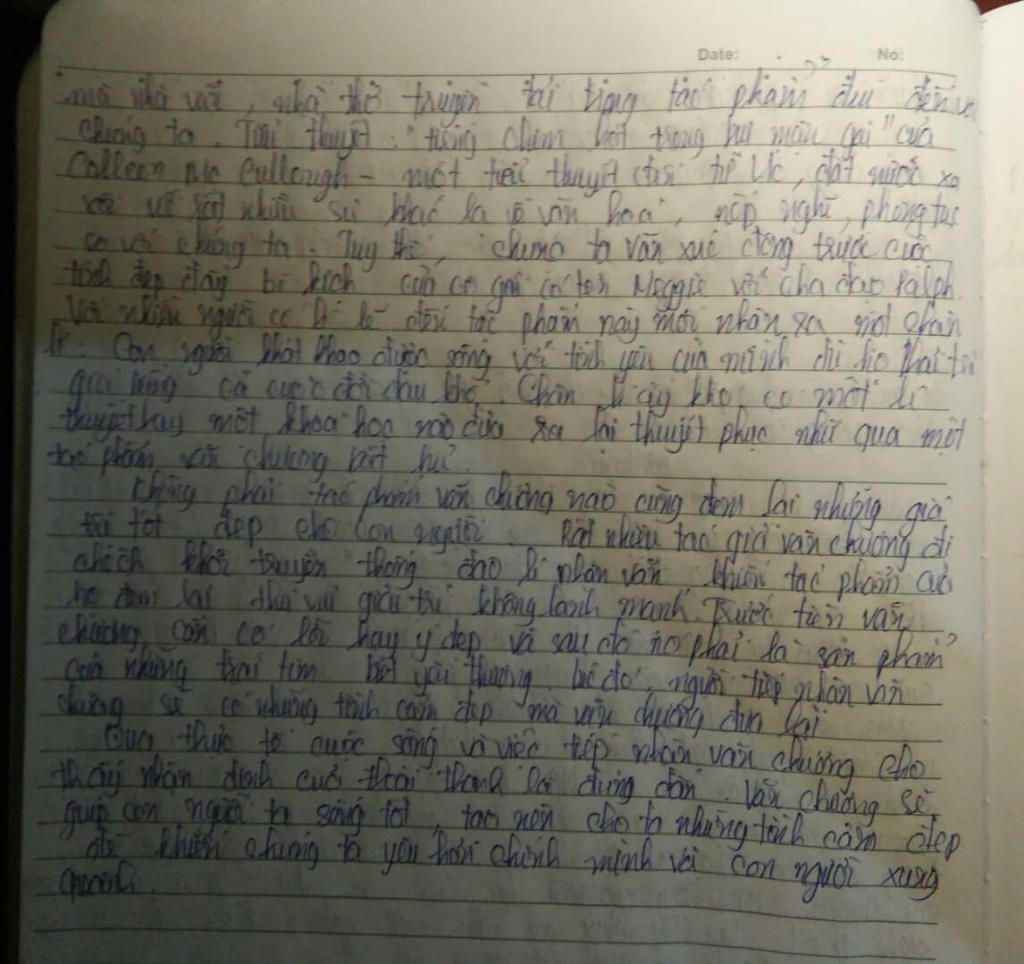 Date: No:
mà nhà văn, nhà thơ truyền tải trong tác phẩm đều đến với
chúng ta. Tiểu thuyết: "tiếng chim hót trong bụi mận gai" của
Colleen Mc Cullough - một tiểu thuyết đến từ Úc, đất nước xa
xôi về rất nhiều sự khác lạ về văn hoá, nếp nghĩ, phong tục
so với chúng ta. Tuy thế, chúng ta vẫn xúc động trước cuộc
tình đẹp đầy bi kịch của cô gái có tên Meggie với cha đạo Ralph.
Với nhiều người có lẽ đến tác phẩm này mới nhận ra một chân
lí: Con người khát khao được sống với tình yêu của mình dù họ phải trả
giá bằng cả cuộc đời đau khổ. Chân lí ấy khó có một lí
thuyết hay một khoa học nào đưa ra lại thuyết phục như qua một
tác phẩm văn chương bất hủ.
Không phải tác phẩm văn chương nào cũng đem lại những giá
trị tốt đẹp cho con người. Rất nhiều tác giả văn chương đi
chệch khỏi truyền thống đạo lí nhân văn khiến tác phẩm của
họ đem lại thú vui giải trí không lành mạnh. Trước tiên văn
chương cần có lời hay ý đẹp và sau đó nó phải là sản phẩm
của những trái tim biết yêu thương. lúc đó, người tiếp nhận văn
chương sẽ có những tình cảm đẹp mà văn chương đưa lại
Qua thực tế cuộc sống và việc tiếp nhận văn chương cho
thấy nhận định của Hoài Thanh là đúng đắn. Văn chương sẽ
giúp con người ta sống tốt, tạo nên cho ta những tình cảm đẹp
để khiến chúng ta yêu hơn chính mình và con người xung
quanh.